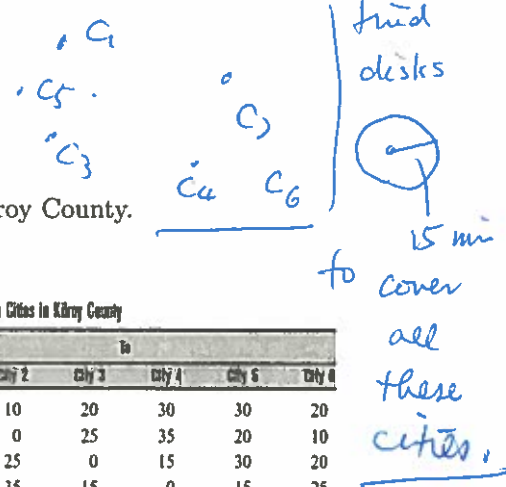 C1
C5
C3
C2
C4 C6
find
disks
15 min
to cover
all
these
cities.
roy County.
Cities in Kilroy County
To
City 2 City 3 City 4 City 5 City 6
10 20 30 30 20
0 25 35 20 10
25 0 15 30 20
35 15 0 15 25